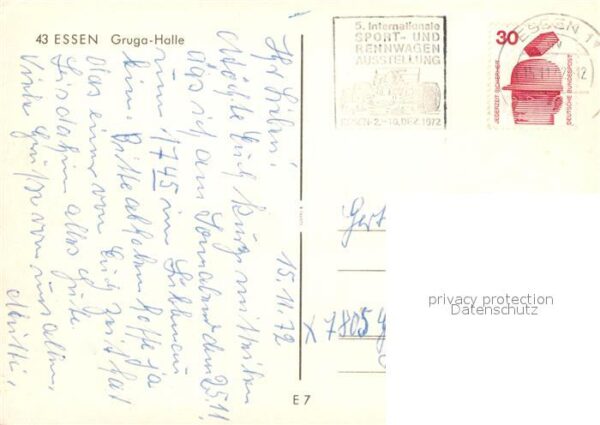 43 ESSEN Gruga-Halle
5. Internationale
SPORT- UND
RENNWAGEN
AUSSTELLUNG
ESSEN 2.-10. DEZ. 1972
ESSEN 1
30
JEDERZEIT SICHERHEIT
DEUTSCHE BUNDESPOST
15.11.72
Ihr Lieben!
Möchte Euch kurz mitteilen
das ich am Sonnabend den 25.11.
um 1745 in
bin. Bitte abholen hoffe ja
das einer von Euch Zeit hat
Bis dahin alles Gute
Viele Grüße von uns allen,
Mutti.
Gert
x 7805
E 7
privacy protection
Datenschutz